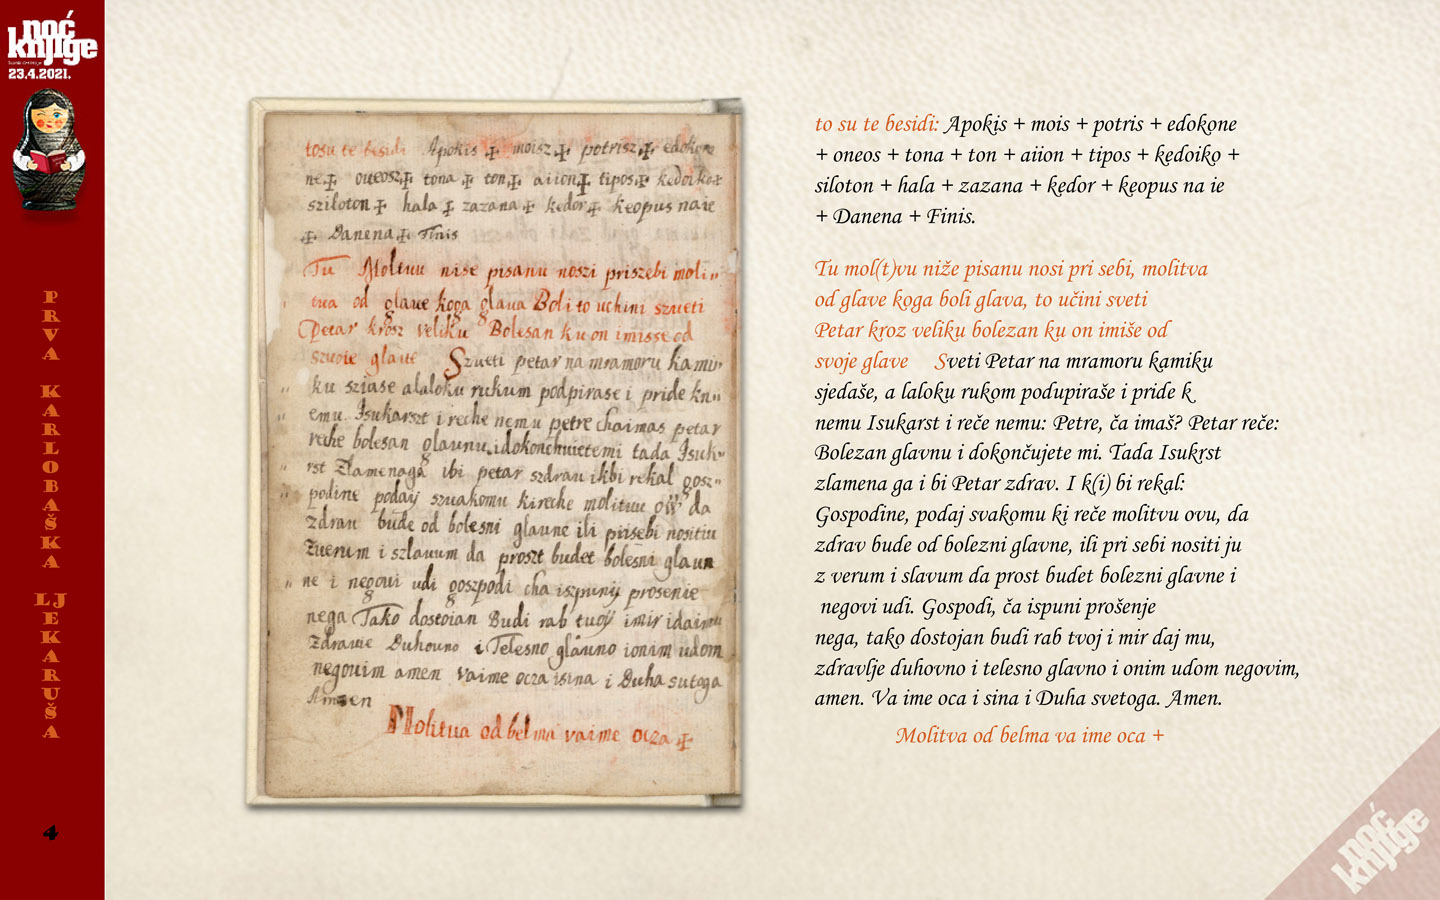 noć
knjige
23.4.2021.
PRVA KARLOBAŠKA LJEKARUŠA
4
tosu te besidi Apokis + moisz + potrisz + edokone
ne + oneosz + tona + ton + aiion + tipos + kedoiko +
sziloton + hala + zazana + kedor + keopus naie
+ Danena + Finis
Tu Molitvu nise pisanu noszi priszebi moli„
tua od glaue koga glaua Boli to uchini szueti
Petar krosz veliku Bolesan ku on imisse od
szuoie glaue Szueti petar na mramoru kamir
ku sziase alaloku rukum podpirase i pride kn„
emu Isukarszt i reche nemu petre chaimas petar
reche bolesan glaunu i dokonchuietemi tada Isuk„
rst Zlamenaga ibi petar szdrau ikbi rekal gosz„
podine podaij szuakomu kireche molituu da
zdrau bude od bolesni glaune ili prisebi nositiu
Zuerum i szlauum da proszt budet bolesni glaun
ne i negoui udi goszpodi cha iszpunij prosenie
nega Tako dostoian Budi rab tuoij imir idaimu
Zdrauie Duhouno i Telesno glauno ionim udom
negouim amen vaime ocza isina i Duha sutoga
Amen
Molitua od belma vaime ocza +
to su te besidi: Apokis + mois + potris + edokone
+ oneos + tona + ton + aiion + tipos + kedoiko +
siloton + hala + zazana + kedor + keopus na ie
+ Danena + Finis.
Tu mol(t)vu niže pisanu nosi pri sebi, molitva
od glave koga boli glava, to učini sveti
Petar kroz veliku bolezan ku on imiše od
svoje glave Sveti Petar na mramoru kamiku
sjedaše, a laloku rukom podupiraše i pride k
nemu Isukarst i reče nemu: Petre, ča imaš? Petar reče:
Bolezan glavnu i dokončujete mi. Tada Isukrst
zlamena ga i bi Petar zdrav. I k(i) bi rekal:
Gospodine, podaj svakomu ki reče molitvu ovu, da
zdrav bude od bolezni glavne, ili pri sebi nositi ju
z verum i slavum da prost budet bolezni glavne i
negovi udi. Gospodi, ča ispuni prošenje
nega, tako dostojan budi rab tvoj i mir daj mu,
zdravlje duhovno i telesno glavno i onim udom negovim,
amen. Va ime oca i sina i Duha svetoga. Amen.
Molitva od belma va ime oca +
noć
knjige